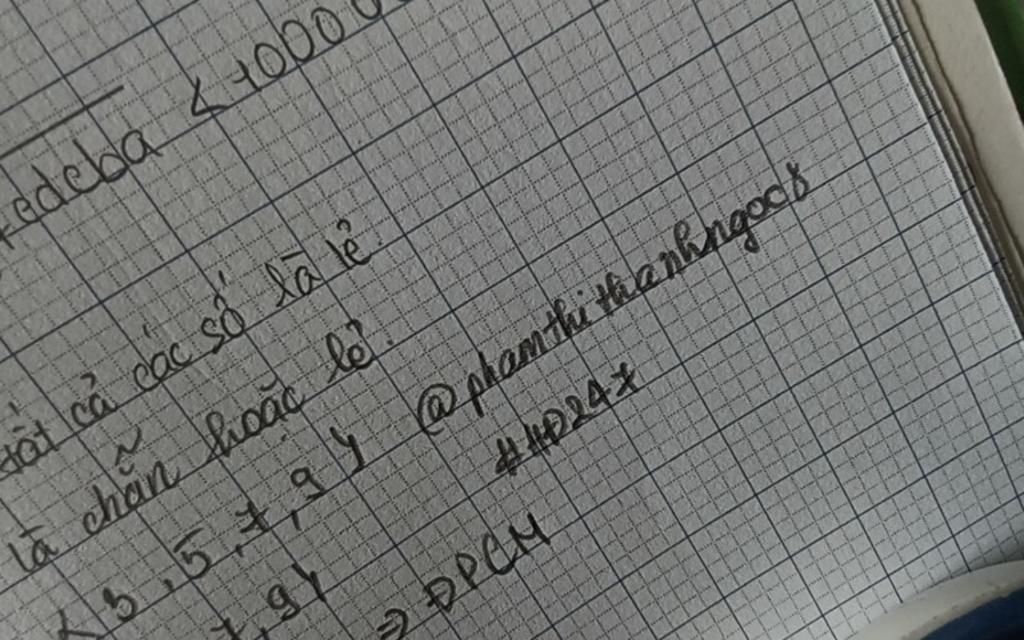 edcba < 10000
tất cả các số là lẻ.
là chẵn hoặc lẻ.
3, 5, 7, 9 } @phamthithanhngoc8
#HD247
7, 9 }
=> ĐPCM